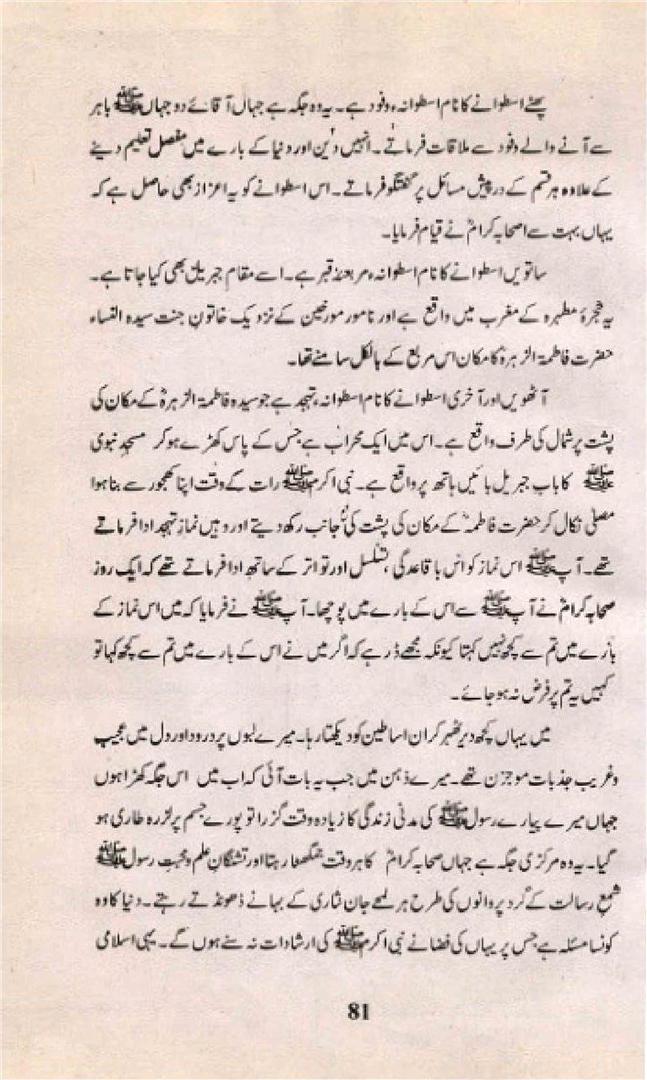 چھٹے اسطوانے کا نام اسطوانہء وفود ہے۔ یہ وہ جگہ ہے جہاں آقائے دو جہاں ﷺ باہر
سے آنے والے وفود سے ملاقات فرماتے۔ انہیں دین اور دنیا کے بارے میں مفصل تعلیم دینے
کے علاوہ ہر قسم کے درپیش مسائل پر گفتگو فرماتے۔ اس اسطوانے کو یہ اعزاز بھی حاصل ہے کہ
یہاں بہت سے اصحابہ کرامؓ نے قیام فرمایا۔
ساتویں اسطوانے کا نام اسطوانہء مربعۃ قبر ہے۔ اسے مقام جبریل بھی کہا جاتا ہے۔
یہ حجرۂ مطہرہ کے مغرب میں واقع ہے اور نامور مورخین کے نزدیک خاتونِ جنت سیدہ النساء
حضرت فاطمۃ الزہرہؓ کا مکان اس مربع کے بالکل سامنے تھا۔
آٹھویں اور آخری اسطوانے کا نام اسطوانہء تہجد ہے جو سیدہ فاطمۃ الزہرہؓ کے مکان کی
پشت پر شمال کی طرف واقع ہے۔ اس میں ایک محراب ہے جس کے پاس کھڑے ہو کر مسجدِ نبوی
ﷺ کا بابِ جبریل بائیں ہاتھ پر واقع ہے۔ نبی اکرم ﷺ رات کے وقت اپنا کھجور سے بنا ہوا
مصلیٰ نکال کر حضرت فاطمہؓ کے مکان کی پشت کی جانب رکھ دیتے اور وہیں نمازِ تہجد ادا فرماتے
تھے۔ آپ ﷺ اس نماز کو اس باقاعدگی، تسلسل اور تواتر کے ساتھ ادا فرماتے تھے کہ ایک روز
صحابہ کرامؓ نے آپ ﷺ سے اس کے بارے میں پوچھا۔ آپ ﷺ نے فرمایا کہ میں اس نماز کے
بارے میں تم سے کچھ نہیں کہتا کیونکہ مجھے ڈر ہے کہ اگر میں نے اس کے بارے میں تم سے کچھ کہا تو
کہیں یہ تم پر فرض نہ ہو جائے۔
میں یہاں کچھ دیر ٹھہر کر ان اساطین کو دیکھتا رہا۔ میرے لبوں پر درود اور دل میں عجیب
و غریب جذبات موجزن تھے۔ میرے ذہن میں جب یہ بات آئی کہ اب میں اس جگہ کھڑا ہوں
جہاں میرے پیارے رسول ﷺ کی مدنی زندگی کا زیادہ وقت گزرا تو پورے جسم پر لزرہ طاری ہو
گیا۔ یہ وہ مرکزی جگہ ہے جہاں صحابہ کرامؓ کا ہر وقت جمگھٹا رہتا اور تشنگانِ علم و محبتِ رسول ﷺ
شمعِ رسالت کے گرد پروانوں کی طرح ہر لمحے جان نثاری کے بہانے ڈھونڈتے رہتے۔ دنیا کا وہ
کونسا مسئلہ ہے جس پر یہاں کی فضا نے نبی اکرم ﷺ کی ارشادات نہ سنے ہوں گے۔ یہی اسلامی
81